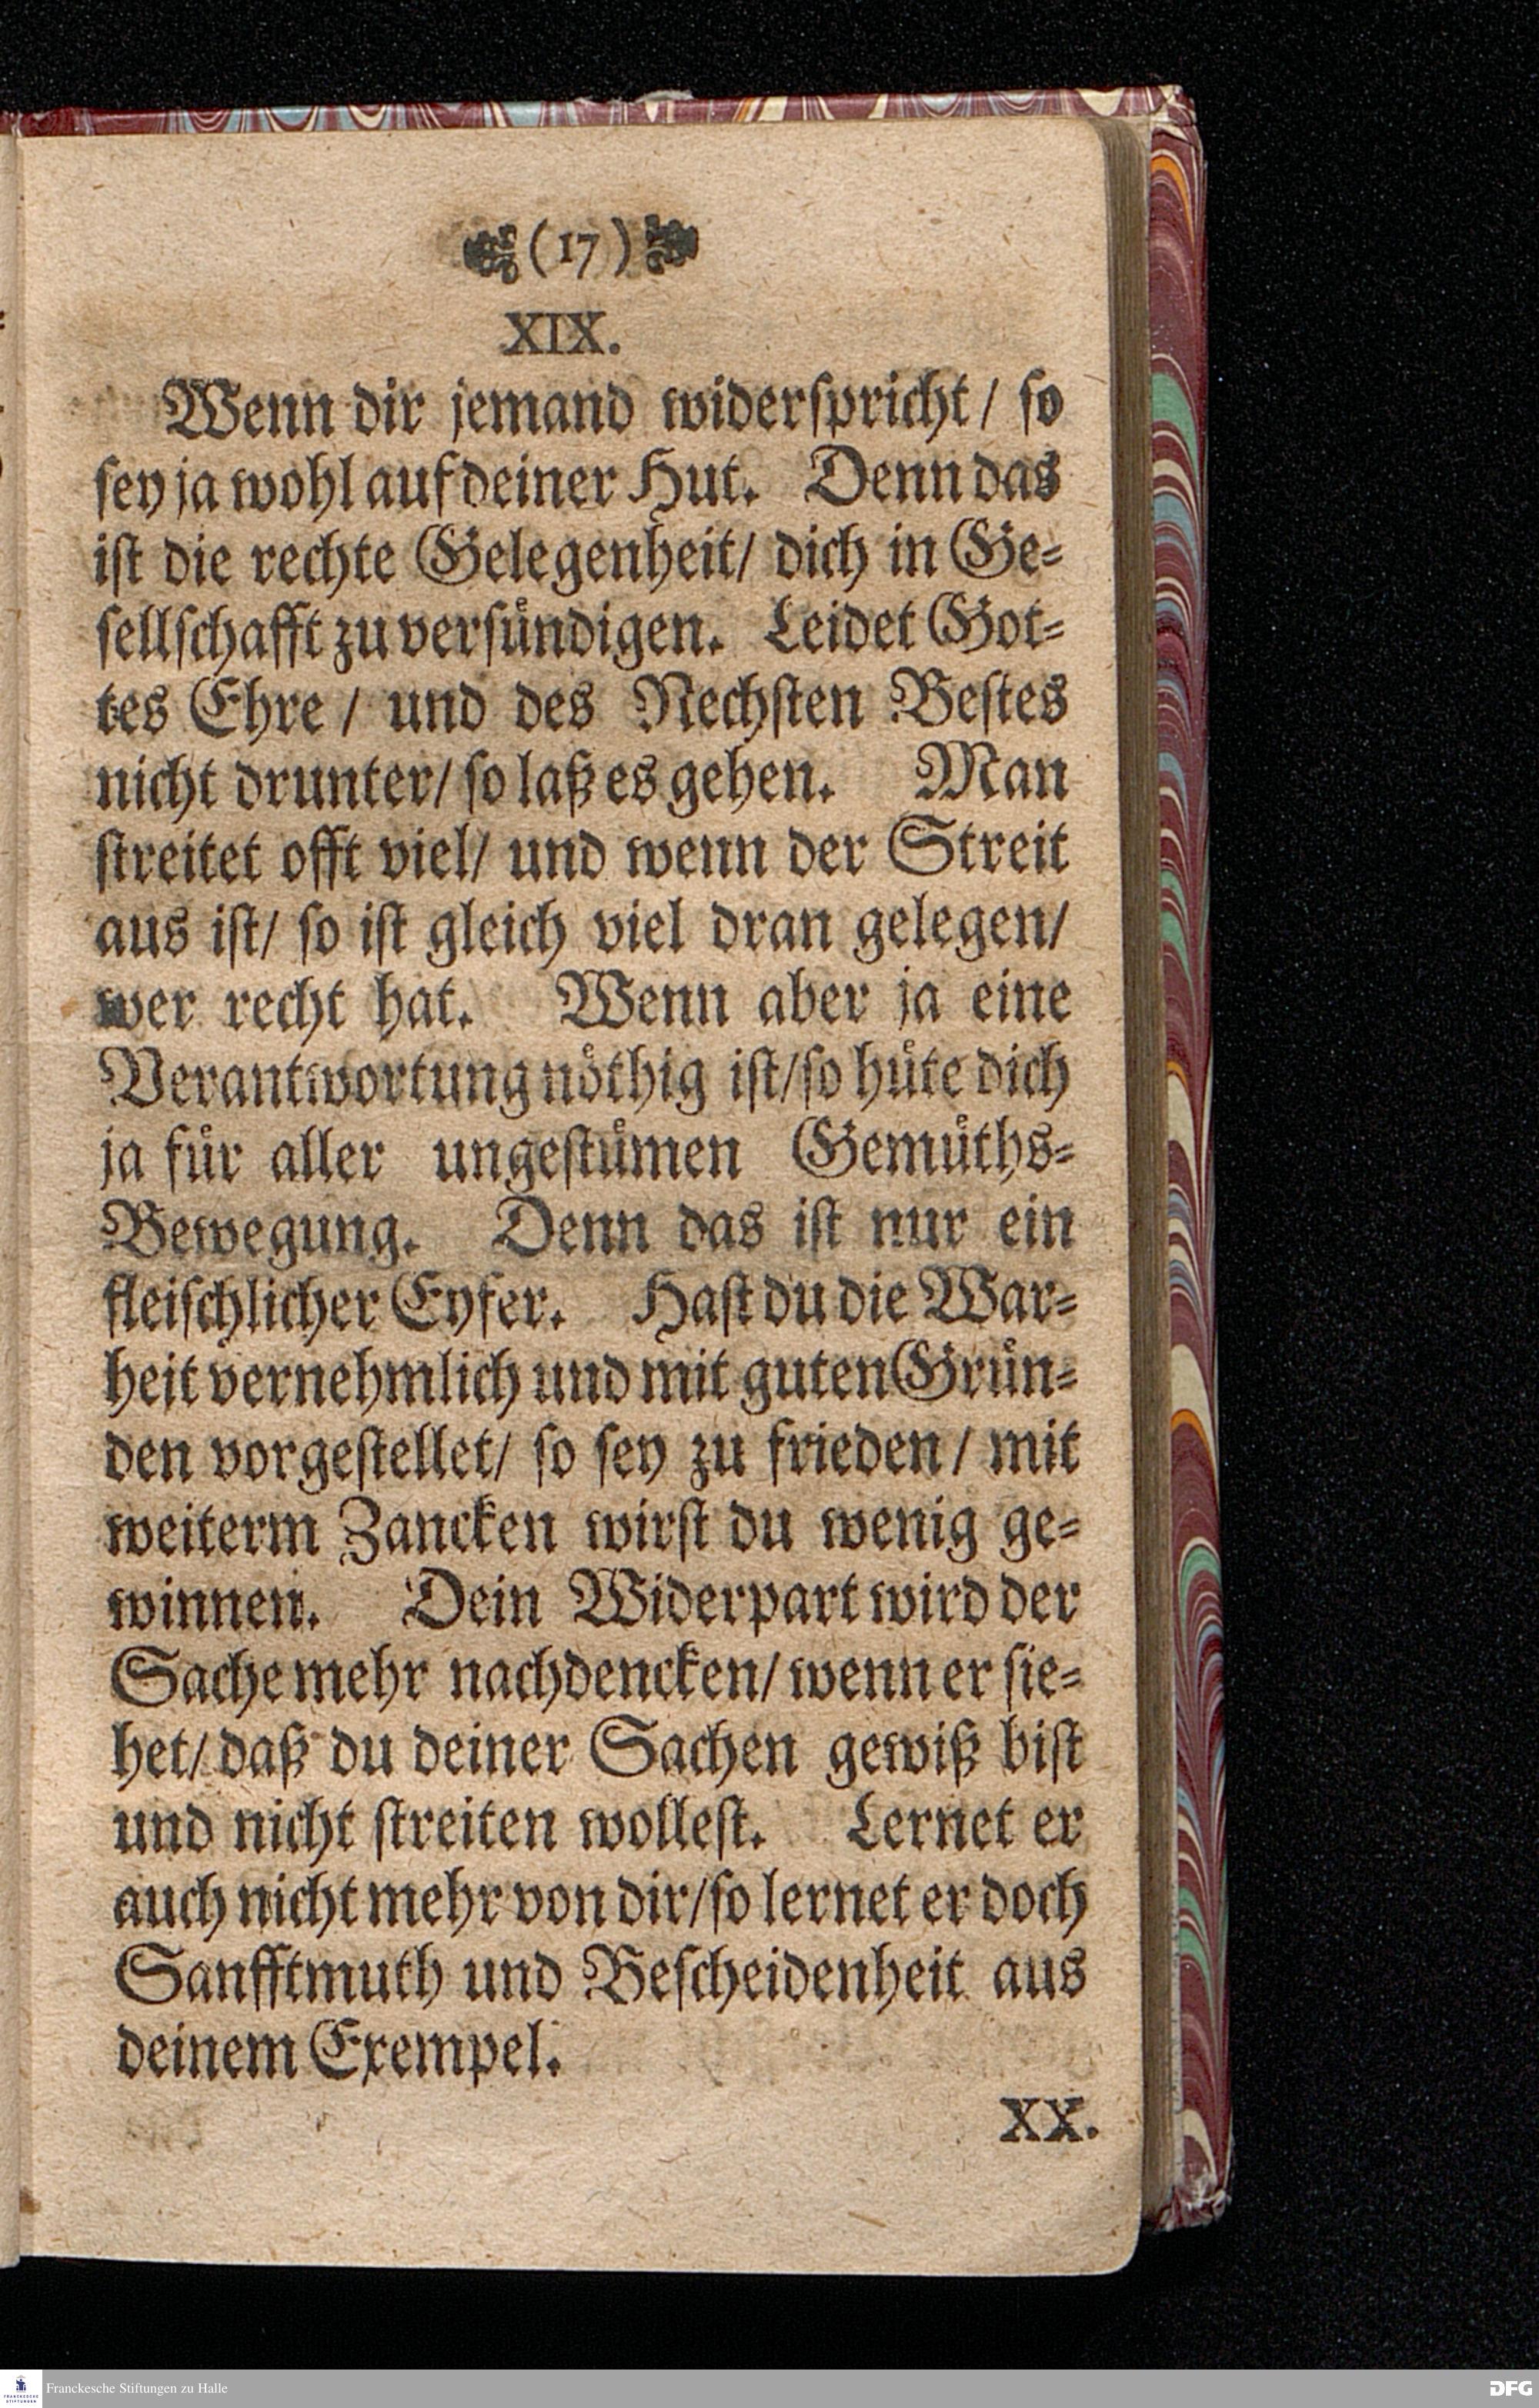 (17)
XIX.
Wenn dir jemand widerspricht/ so
sey ja wohl auf deiner Hut. Denn das
ist die rechte Gelegenheit/ dich in Ge-
sellschafft zu versuͤndigen. Leidet Got-
tes Ehre/ und des Nechsten Bestes
nicht drunter/ so laß es gehen. Man
streitet offt viel/ und wenn der Streit
aus ist/ so ist gleich viel dran gelegen/
wer recht hat. Wenn aber ja eine
Verantwortung noͤthig ist/ so huͤte dich
ja fuͤr aller ungestuͤmen Gemuͤths-
Bewegung. Denn das ist nur ein
fleischlicher Eyfer. Hast du die War-
heit vernehmlich und mit guten Gruͤn-
den vorgestellet/ so sey zu frieden/ mit
weiterm Zancken wirst du wenig ge-
winnen. Dein Widerpart wird der
Sache mehr nachdencken/ wenn er sie-
het/ daß du deiner Sachen gewiß bist
und nicht streiten wollest. Lernet er
auch nicht mehr von dir/ so lernet er doch
Sanfftmuth und Bescheidenheit aus
deinem Exempel.
XX.
FRANCKESCHE
STIFTUNGEN
Franckesche Stiftungen zu Halle
DFG